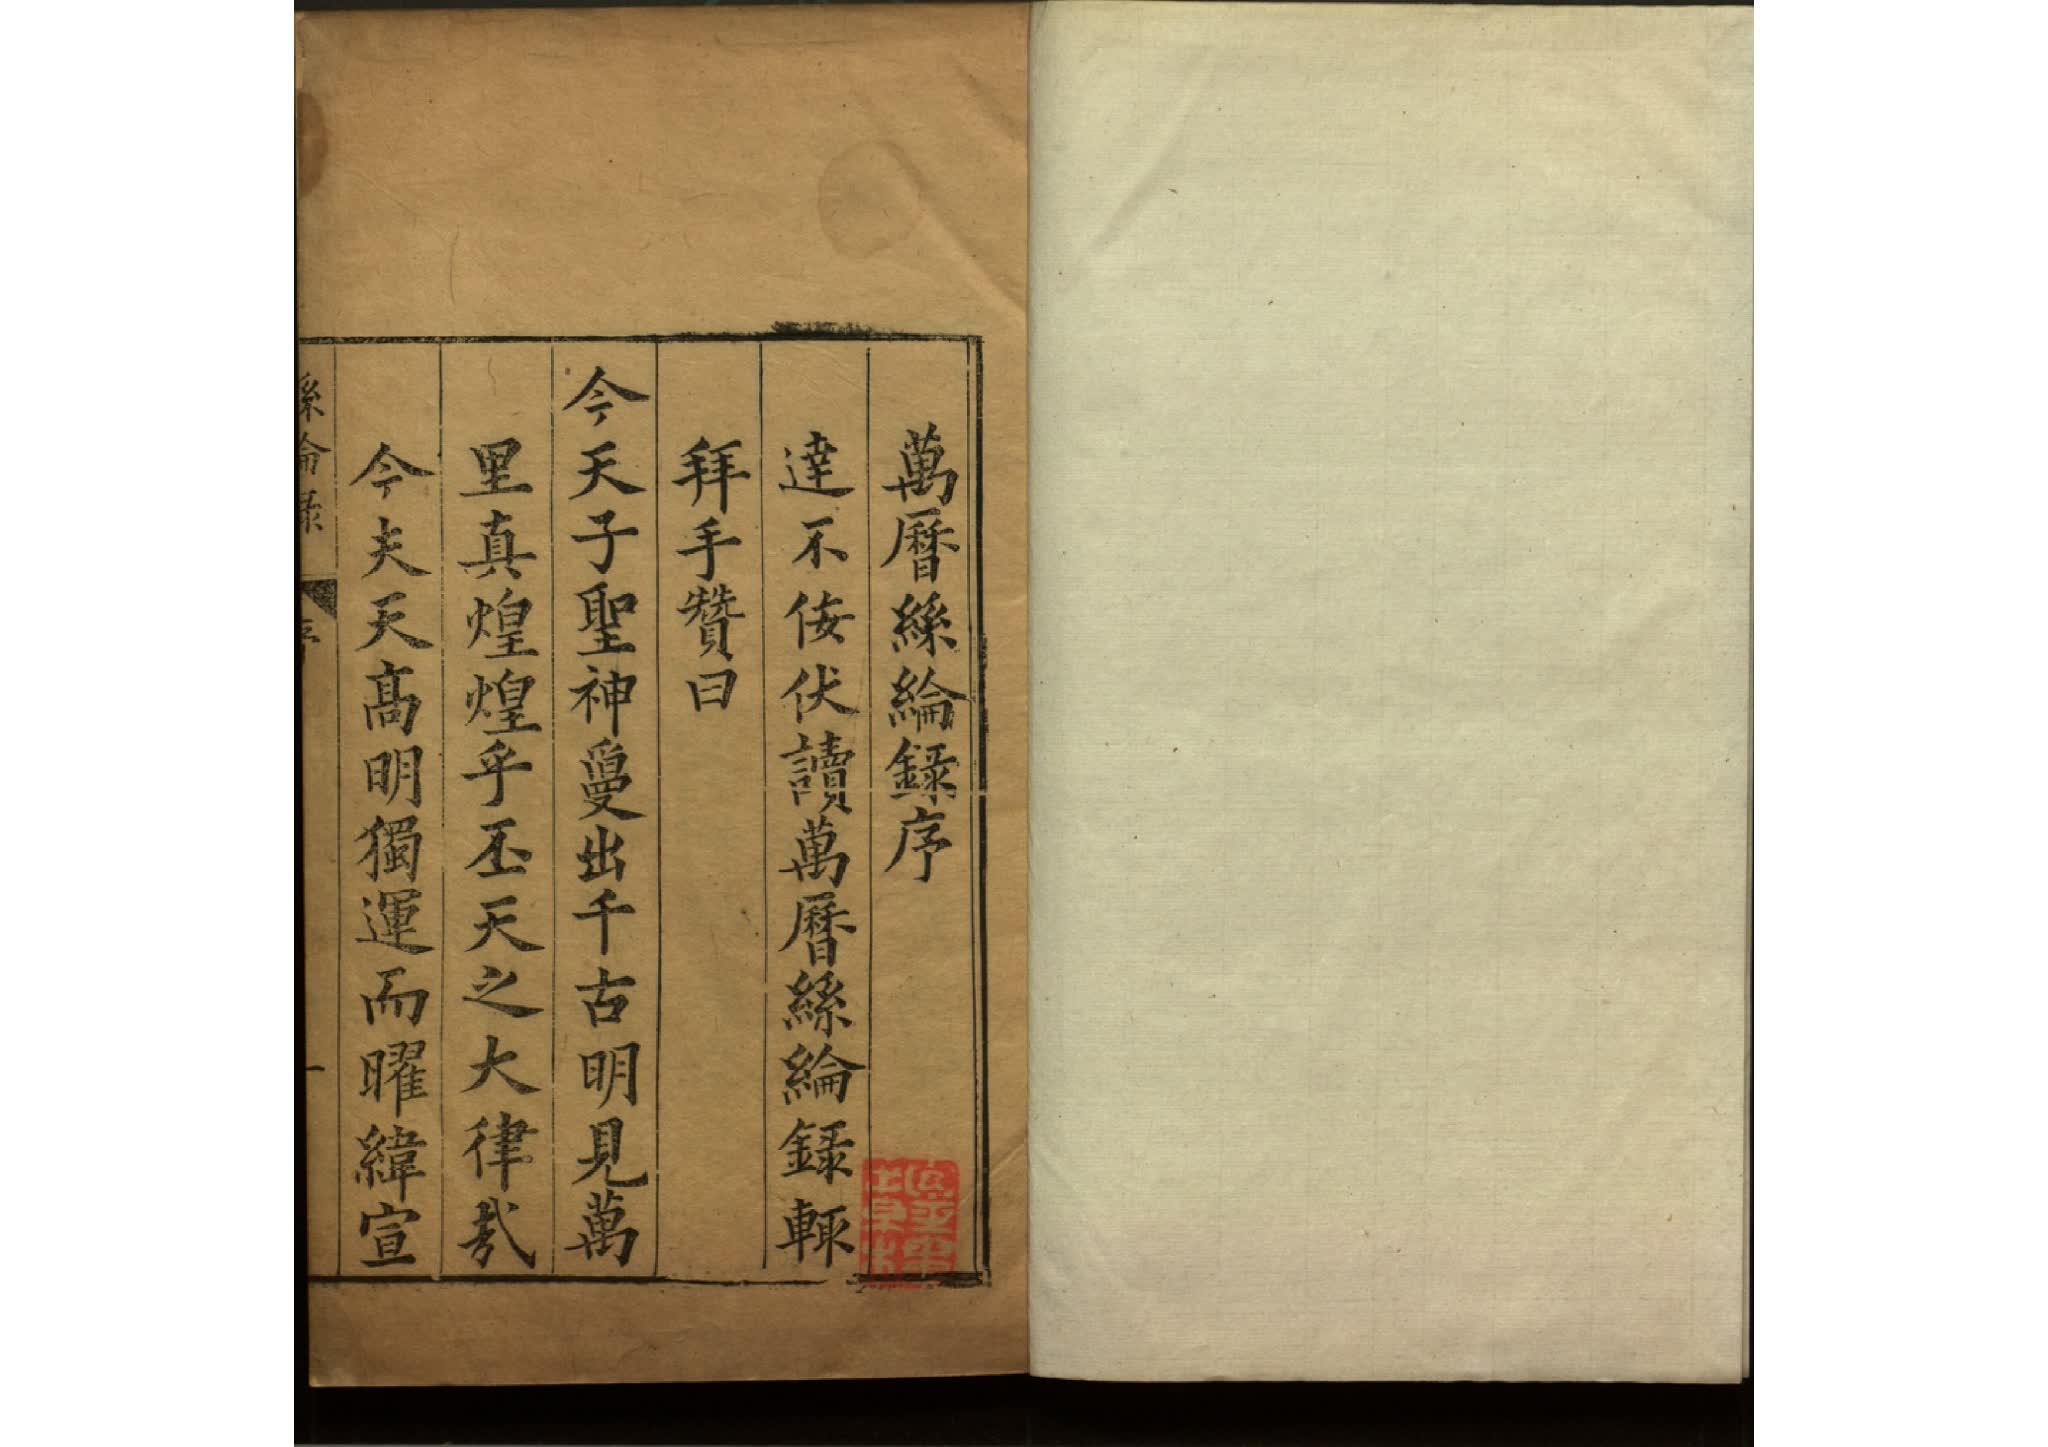 萬曆絲綸錄序
達不佞伏讀萬曆絲綸錄輒
拜手贊曰
今天子聖神敻出千古明見萬
里真煌煌乎丕天之大律哉
今夫天高明獨運而曜緯宣
絲綸錄
序
一